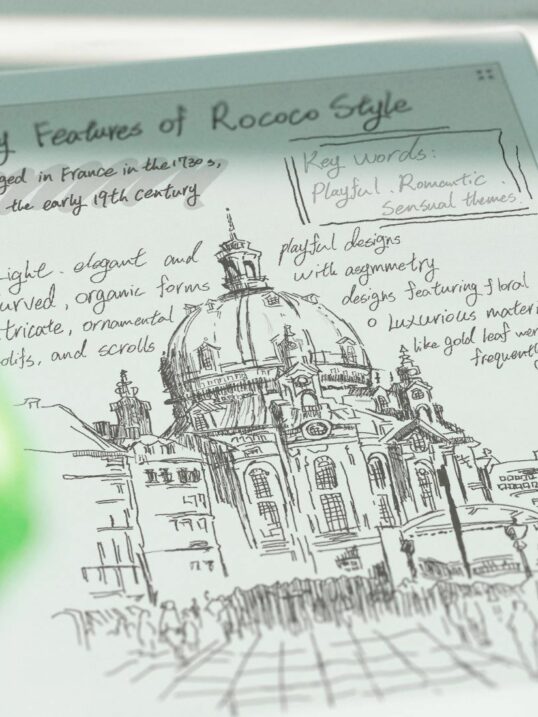 Features of Rococo Style
in France in the 1730s,
the early 19th century
Key words:
Playful. Romantic
Sensual themes.
light. elegant and
curved, organic forms
ornamental
and scrolls
playful designs
with asymmetry
designs featuring floral
o Luxurious
like gold leaf